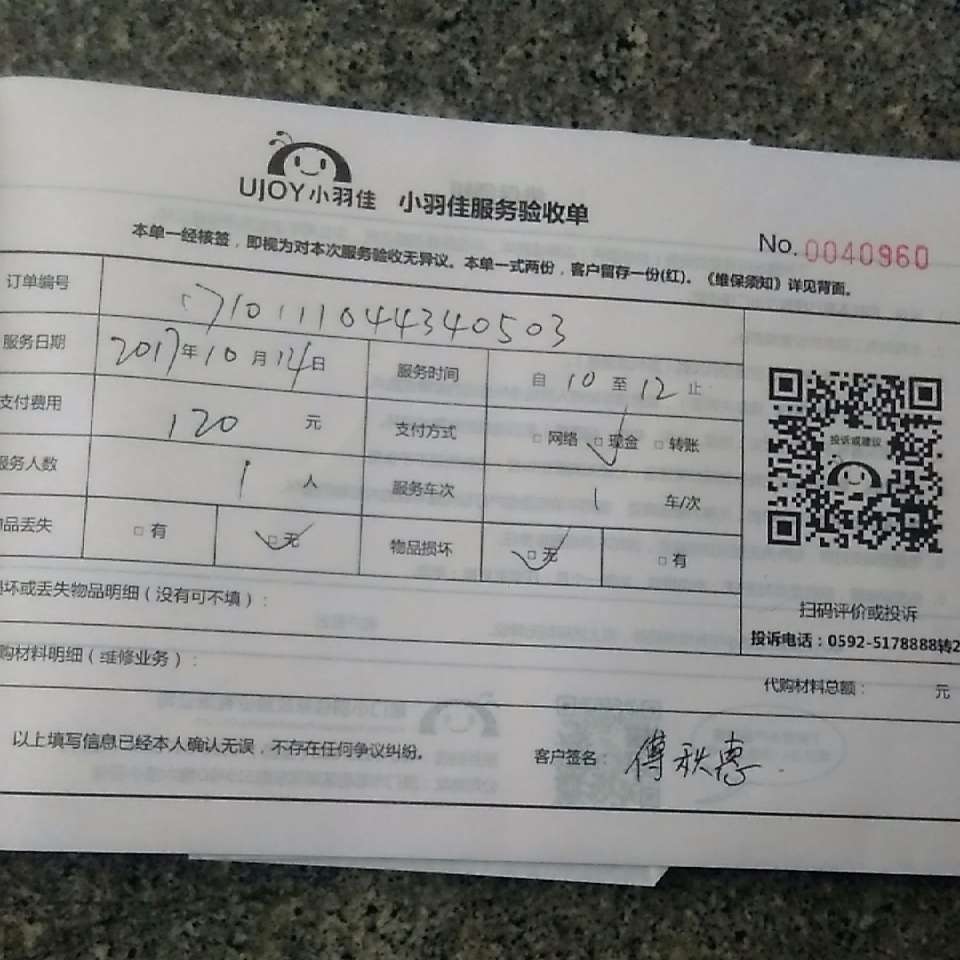 UJOY小羽佳 小羽佳服务验收单
No. 0040960
本单一经核签，即视为对本次服务验收无异议。本单一式两份，客户留存一份(红)。《维保须知》详见背面。
订单编号
710111044340503
服务日期 2017年10月14日 服务时间 自 10 至 12 止
支付费用 120 元 支付方式 □网络 □现金 □转账
服务人数 1 人 服务车次 1 车/次
品丢失 □有 □无 物品损坏 □无 □有
投诉或建议
扫码评价或投诉
投诉电话：0592-5178888转2
坏或丢失物品明细（没有可不填）：
购材料明细（维修业务）：
代购材料总额： 元
以上填写信息已经本人确认无误，不存在任何争议纠纷。 客户签名：傅秋惠